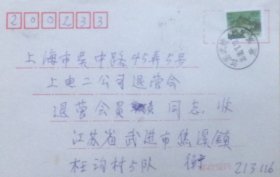 200233
上海市吴中路45弄5号
上电二公司退管会
退管会员 同志 收
江苏省武进市焦溪镇
村5队
213116